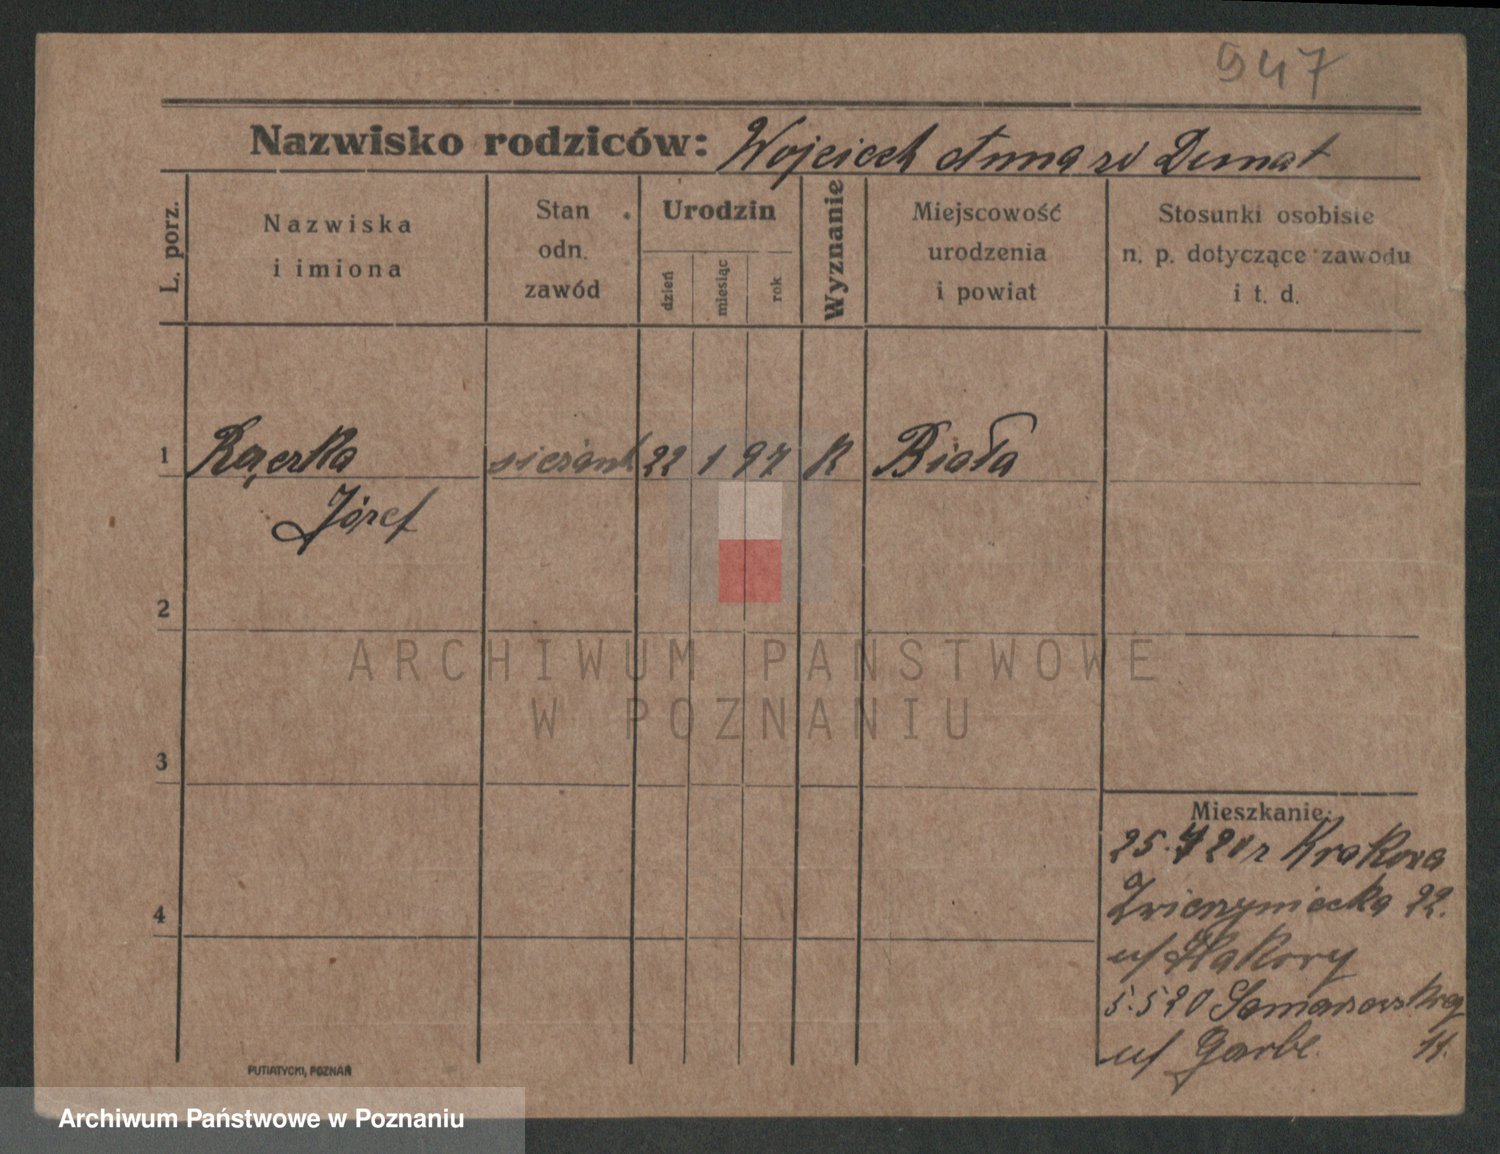 947
Nazwisko rodziców: Wojciech Anna zd Dunat
L. porz.
Nazwiska
i imiona
Stan
odn.
zawód
Urodzin
dzień
miesiąc
rok
Wyznanie
Miejscowość
urodzenia
i powiat
Stosunki osobiste
n. p. dotyczące zawodu
i t. d.
1 Rączka sierżant 22 1 97 K Biała
Józef
2
ARCHIWUM PAŃSTWOWE
W POZNANIU
3
Mieszkanie:
25.4 20 r Krakowa
4
Zwierzyniecka 22.
u/
5.5 20
u/ Garbe 11.
PUTIATYCKI, POZNAŃ
Archiwum Państwowe w Poznaniu